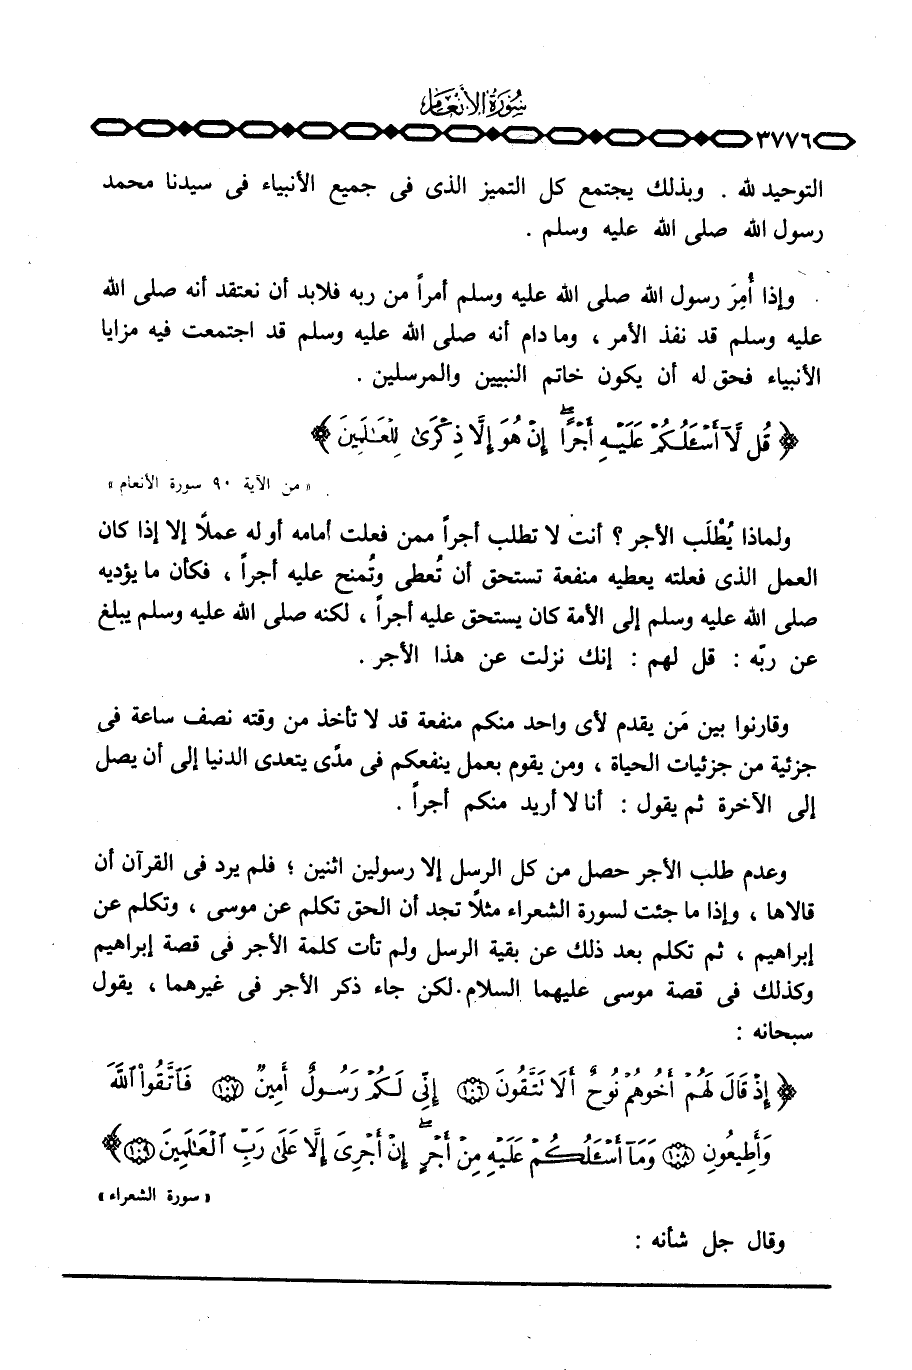 سورة الأنعام
٣٧٧٦
التوحيد لله . وبذلك يجتمع كل التميز الذى فى جميع الأنبياء فى سيدنا محمد
رسول الله صلى الله عليه وسلم .
وإذا أُمِرَ رسول الله صلى الله عليه وسلم أمراً من ربه فلابد أن نعتقد أنه صلى الله
عليه وسلم قد نفذ الأمر ، وما دام أنه صلى الله عليه وسلم قد اجتمعت فيه مزايا
الأنبياء فحق له أن يكون خاتم النبيين والمرسلين .
﴿ قُل لَّآ أَسْـَٔلُكُمْ عَلَيْهِ أَجْرًا ۖ إِنْ هُوَ إِلَّا ذِكْرَىٰ لِلْعَـٰلَمِينَ ﴾
« من الآية ٩٠ سورة الأنعام »
ولماذا يُطْلَب الأجر ؟ أنت لا تطلب أجراً ممن فعلت أمامه أو له عملًا إلا إذا كان
العمل الذى فعلته يعطيه منفعة تستحق أن تُعطى وتُمنح عليه أجراً ، فكأن ما يؤديه
صلى الله عليه وسلم إلى الأمة كان يستحق عليه أجراً ، لكنه صلى الله عليه وسلم يبلغ
عن ربّه : قل لهم : إنك نزلت عن هذا الأجر .
وقارنوا بين مَن يقدم لأى واحد منكم منفعة قد لا تأخذ من وقته نصف ساعة فى
جزئية من جزئيات الحياة ، ومن يقوم بعمل ينفعكم فى مدًى يتعدى الدنيا إلى أن يصل
إلى الآخرة ثم يقول : أنا لا أريد منكم أجراً .
وعدم طلب الأجر حصل من كل الرسل إلا رسولين اثنين ؛ فلم يرد فى القرآن أن
قالاها ، وإذا ما جئت لسورة الشعراء مثلًا تجد أن الحق تكلم عن موسى ، وتكلم عن
إبراهيم ، ثم تكلم بعد ذلك عن بقية الرسل ولم تأت كلمة الأجر فى قصة إبراهيم
وكذلك فى قصة موسى عليهما السلام . لكن جاء ذكر الأجر فى غيرهما ، يقول
سبحانه :
﴿ إِذْ قَالَ لَهُمْ أَخُوهُمْ نُوحٌ أَلَا تَتَّقُونَ ١٠٦ إِنِّي لَكُمْ رَسُولٌ أَمِينٌ ١٠٧ فَاتَّقُوا۟ ٱللَّهَ
وَأَطِيعُونِ ١٠٨ وَمَآ أَسْـَٔلُكُمْ عَلَيْهِ مِنْ أَجْرٍ ۖ إِنْ أَجْرِيَ إِلَّا عَلَىٰ رَبِّ ٱلْعَـٰلَمِينَ ١٠٩ ﴾
« سورة الشعراء »
وقال جل شأنه :